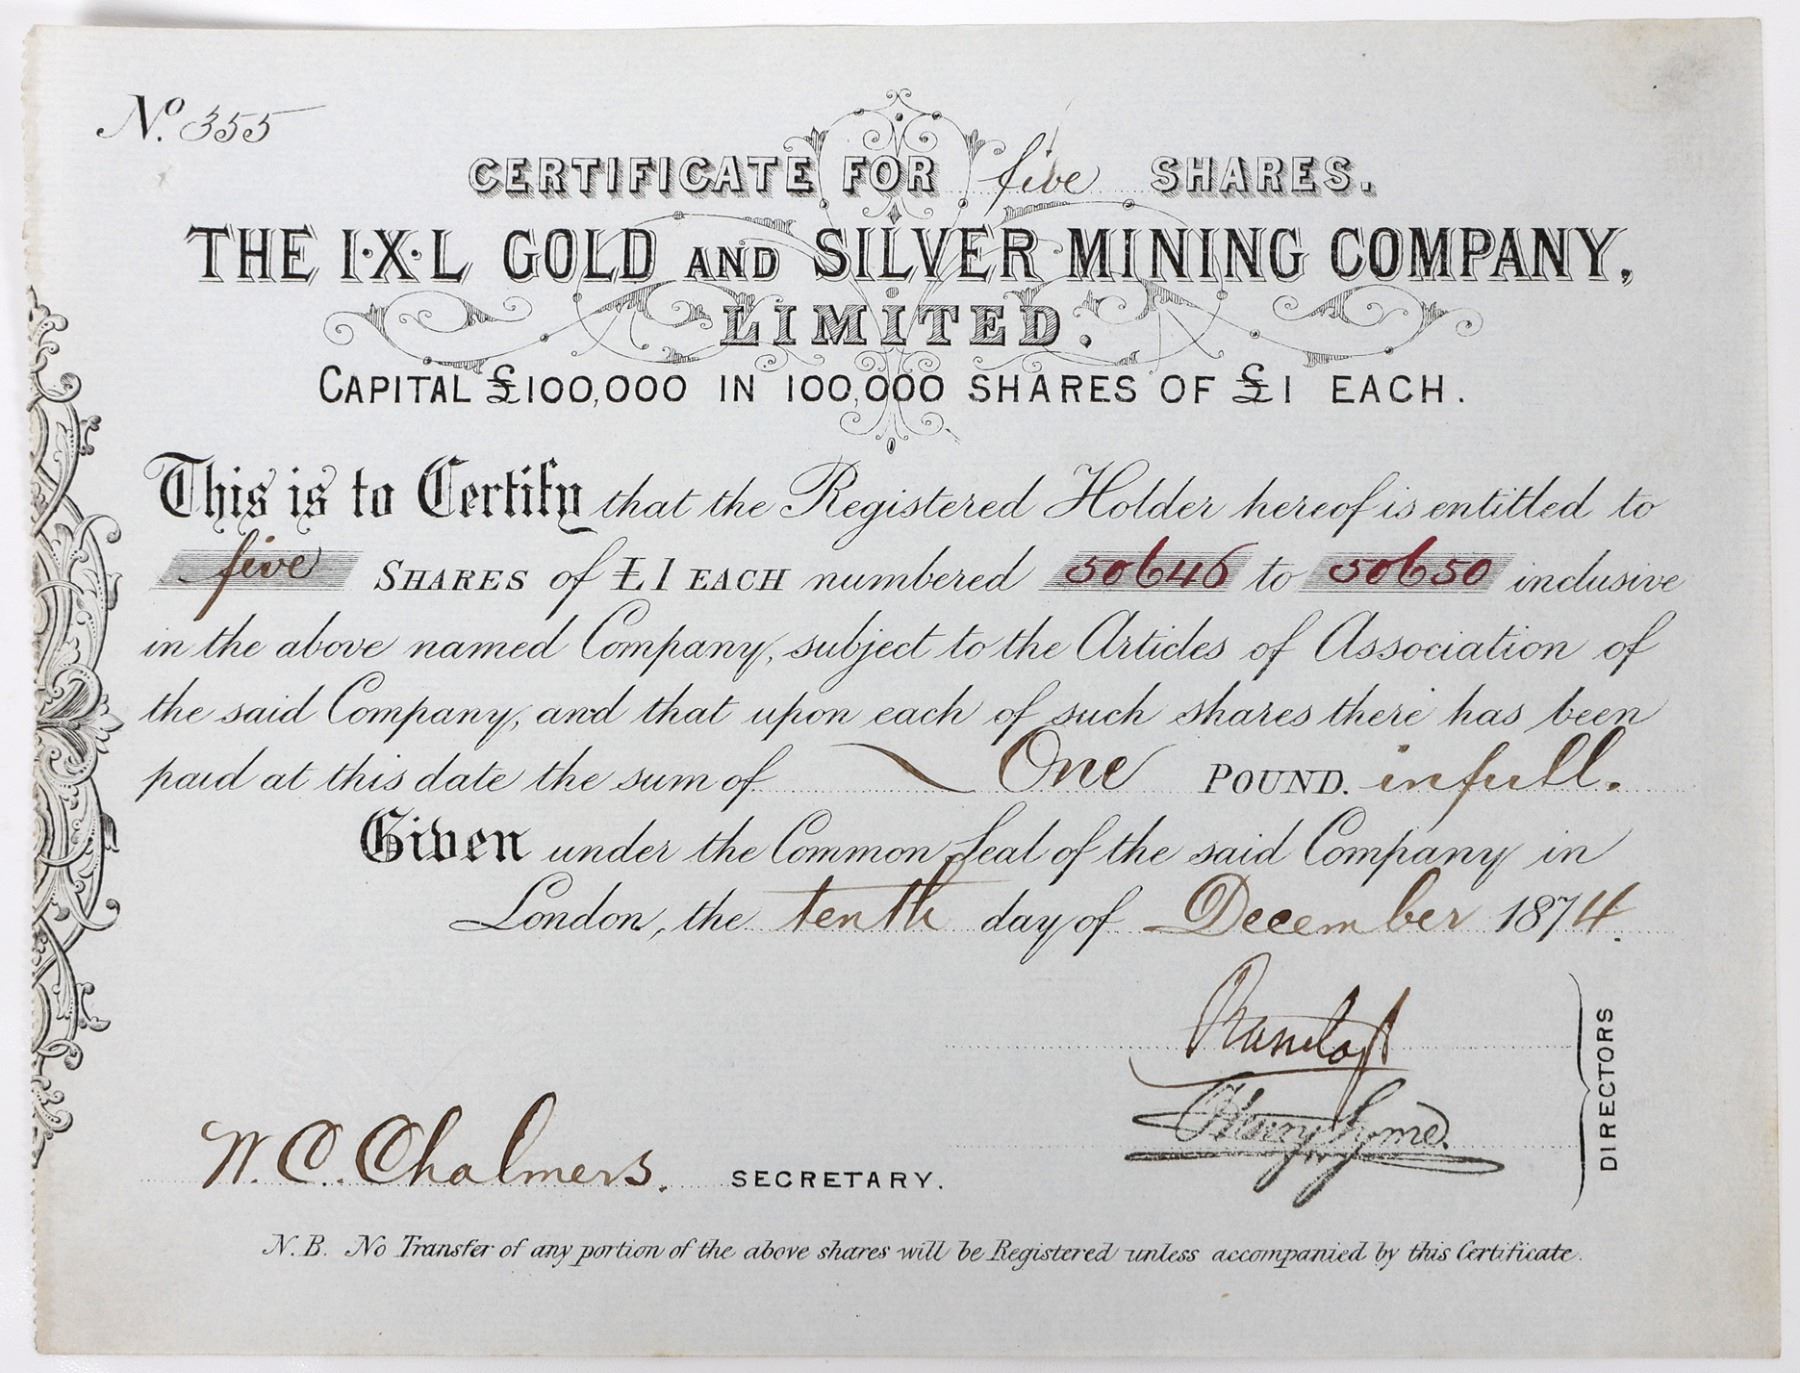 No. 355
CERTIFICATE FOR five SHARES.
THE I·X·L GOLD AND SILVER MINING COMPANY,
LIMITED.
CAPITAL £100,000 IN 100,000 SHARES OF £1 EACH.
This is to Certify that the Registered Holder hereof is entitled to
five SHARES of £1 EACH numbered 50646 to 50650 inclusive
in the above named Company, subject to the Articles of Association of
the said Company, and that upon each of such shares there has been
paid at this date the sum of One POUND. in full.
Given under the Common Seal of the said Company in
London, the tenth day of December 1874.
Henry Syme.
DIRECTORS
W. C. Chalmers. SECRETARY.
N.B. No Transfer of any portion of the above shares will be Registered unless accompanied by this Certificate.